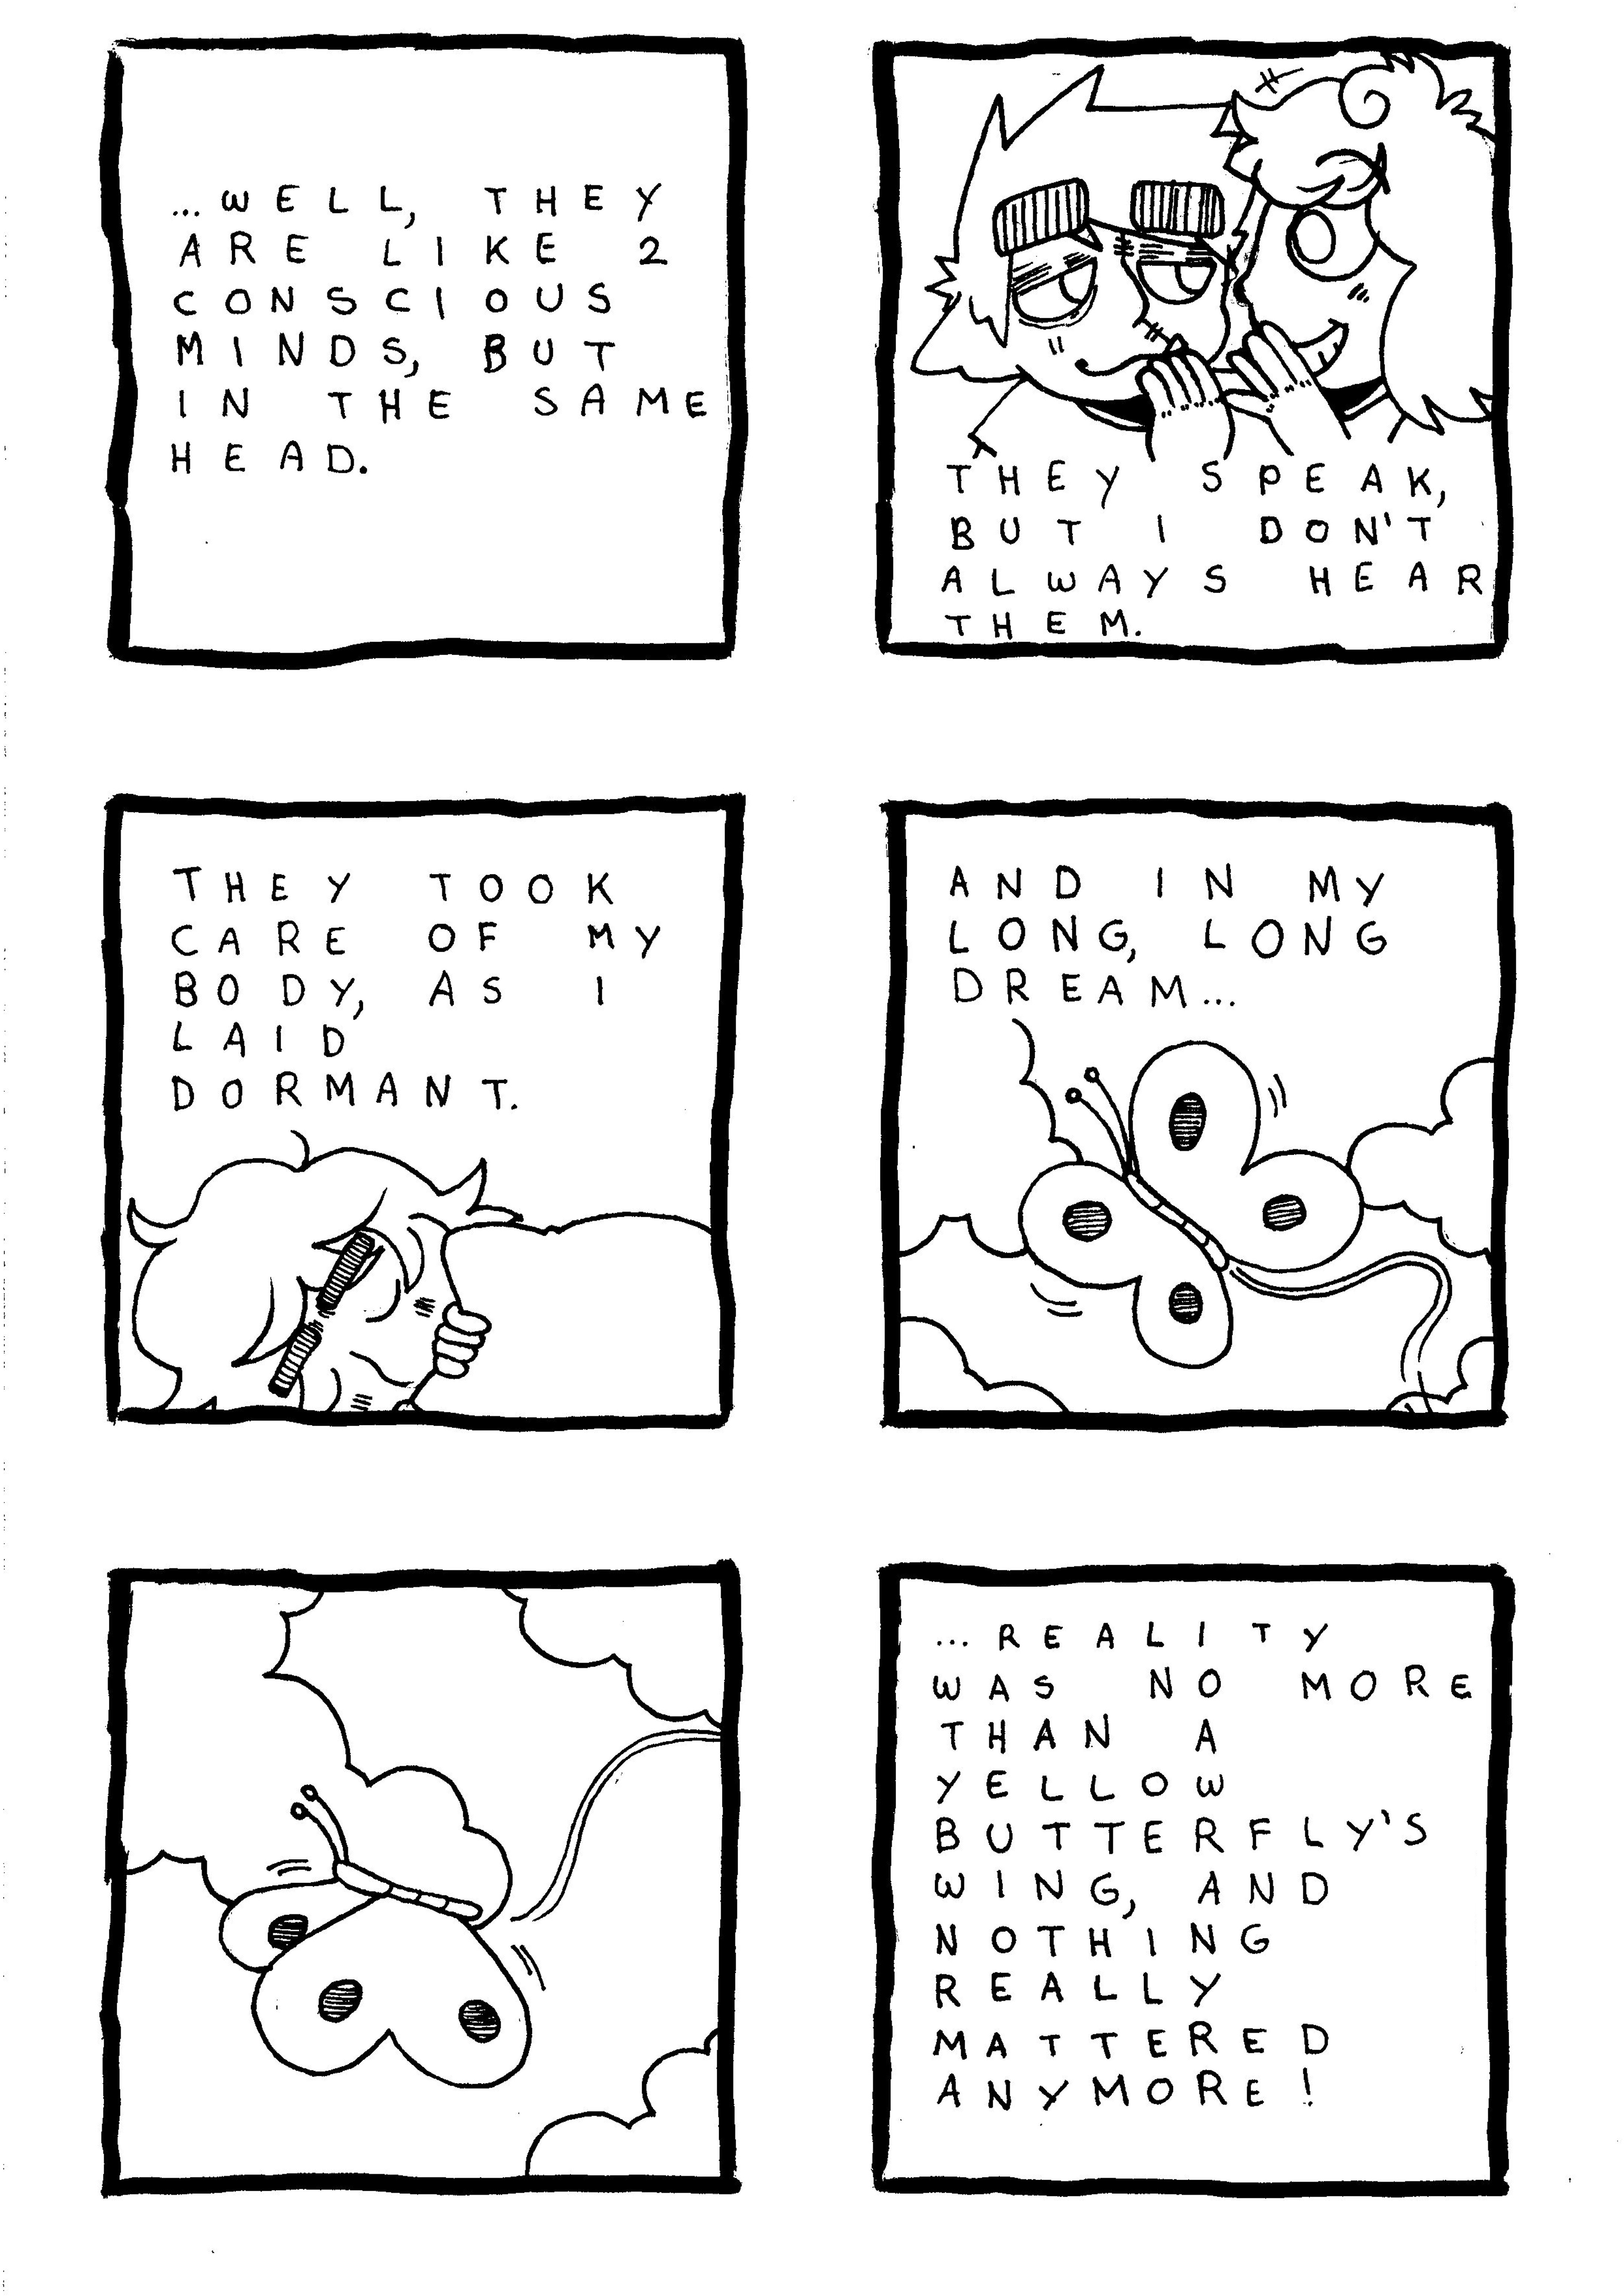 ...WELL, THEY
ARE LIKE 2
CONSCIOUS
MINDS, BUT
IN THE SAME
HEAD.
THEY SPEAK,
BUT I DON'T
ALWAYS HEAR
THEM.
THEY TOOK
CARE OF MY
BODY, AS I
LAID
DORMANT.
AND IN MY
LONG, LONG
DREAM...
...REALITY
WAS NO MORE
THAN A
YELLOW
BUTTERFLY'S
WING, AND
NOTHING
REALLY
MATTERED
ANYMORE!